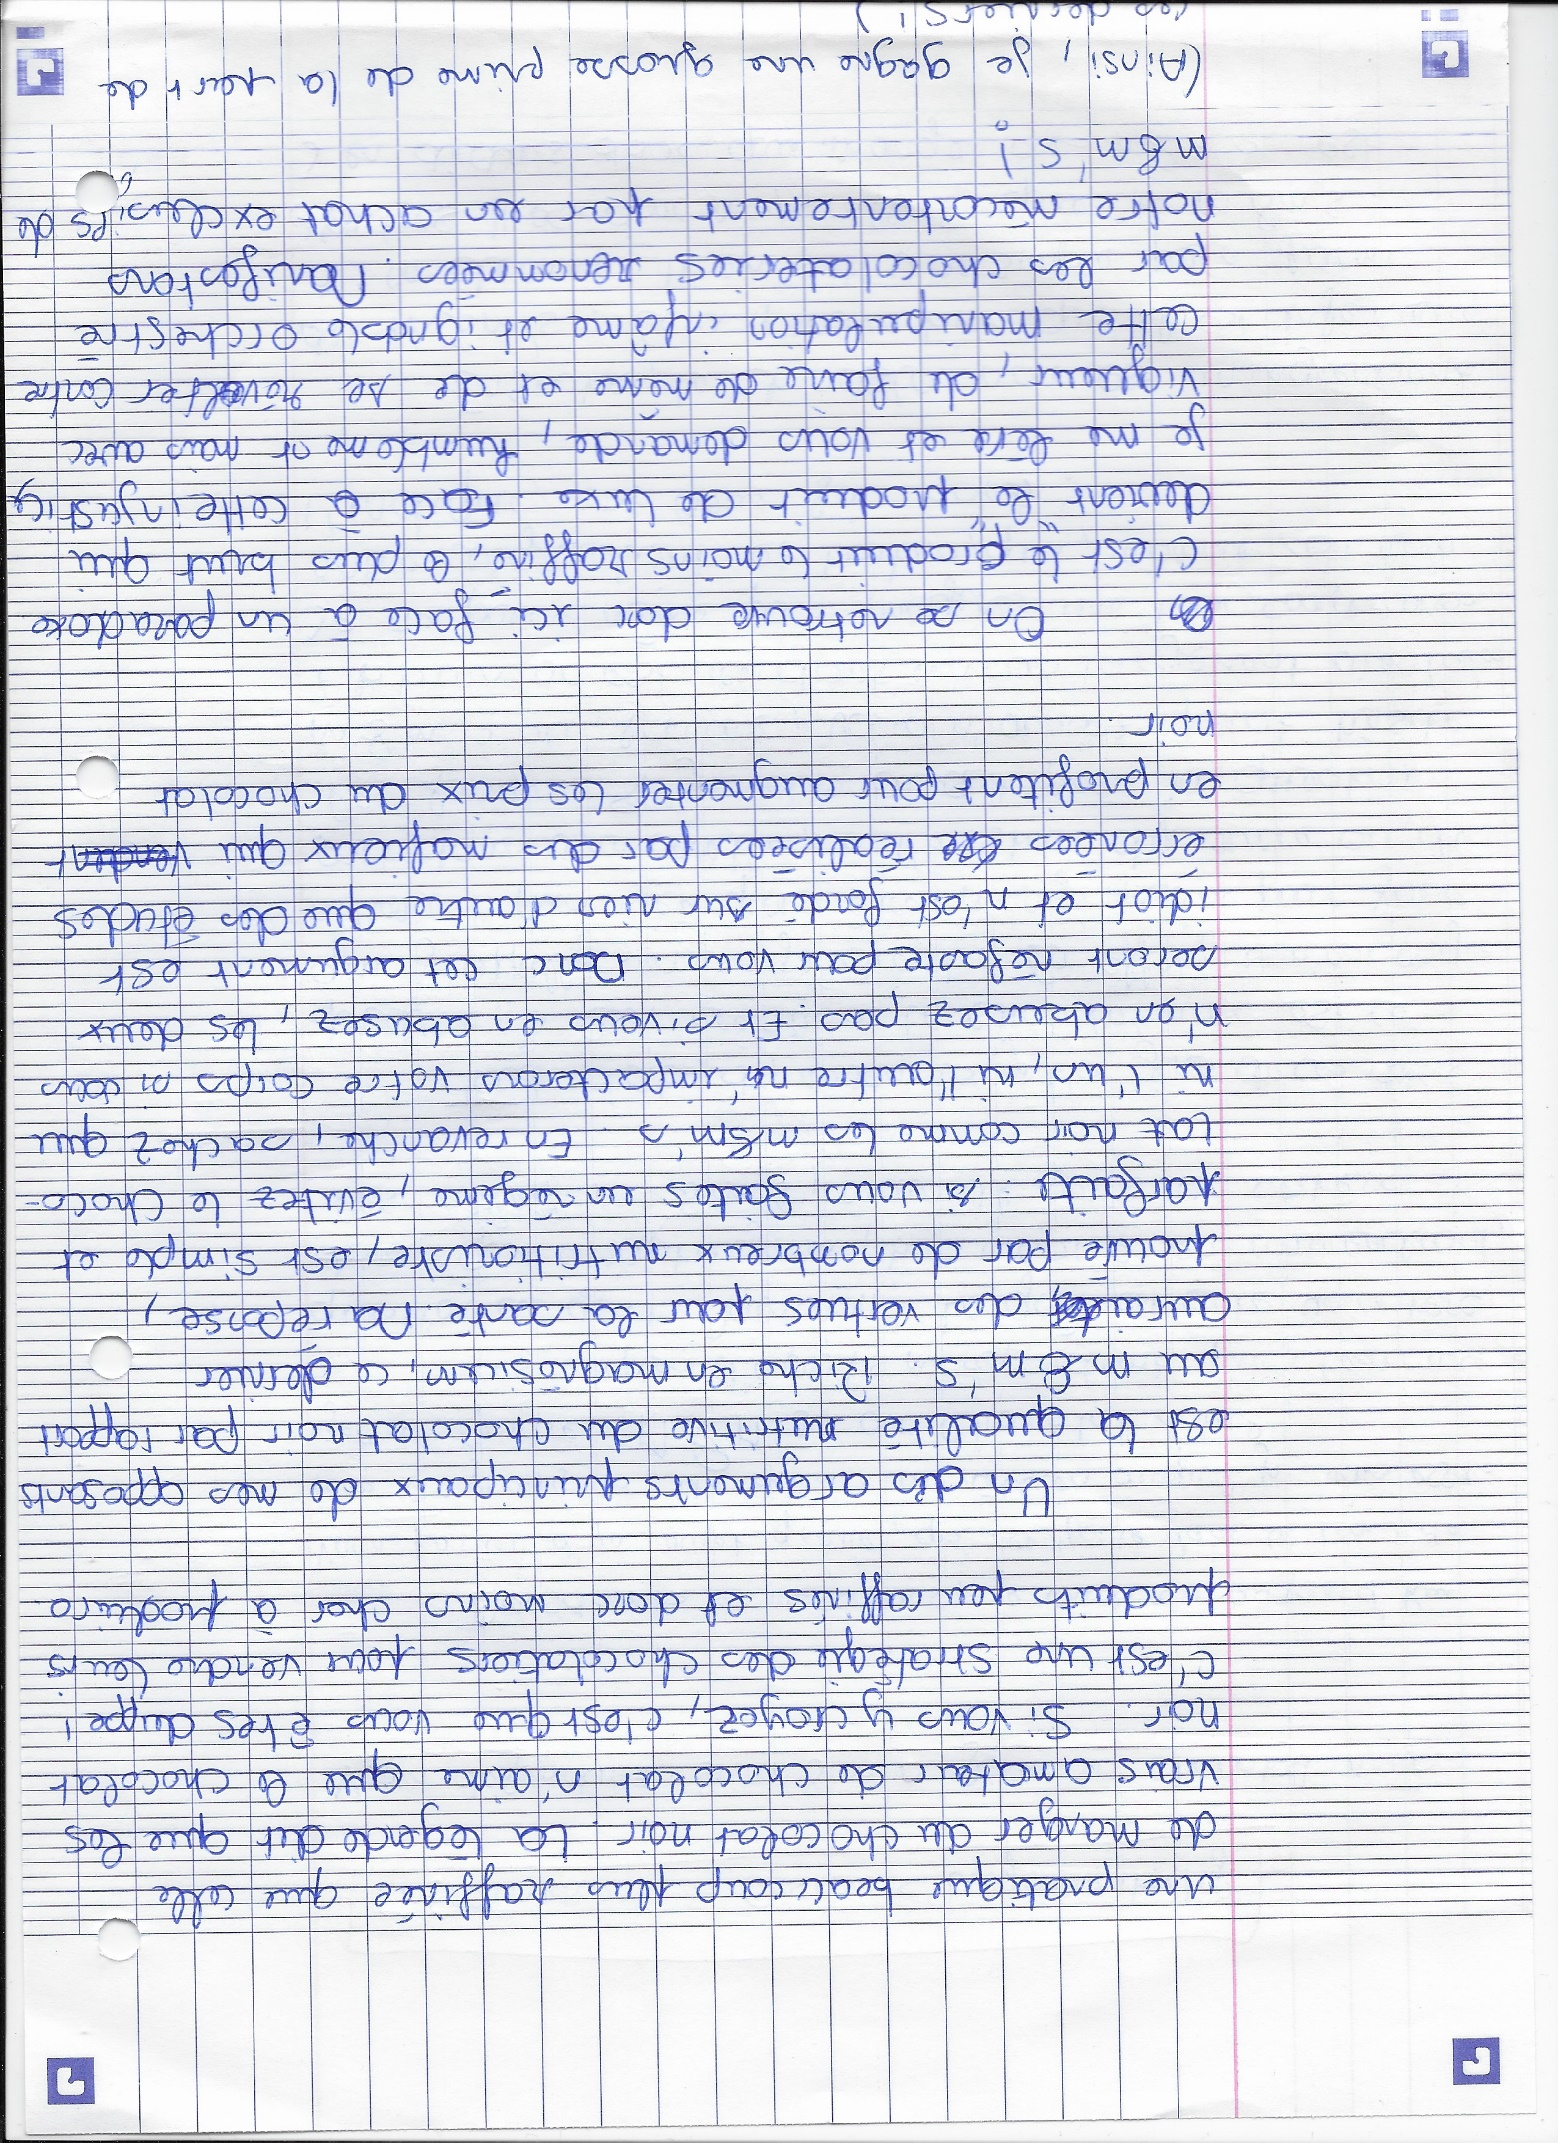 une pratique beaucoup plus raffinée que celle
de manger du chocolat noir. La légende dit que les
vrais amateur de chocolat n'aime que le chocolat
noir. Si vous y croyez, c'est que vous êtes duppe !
c'est une stratégie des chocolatiers pour vendre leurs
produits peu raffinés et donc moins cher à produire
Un des arguments principaux de mes opposants
est la qualité nutritive du chocolat noir par rapport
au m&m's. Riche en magnésium, ce dernier
aurait des vertues pour la santé. Ma réponse,
prouvé par de nombreux nutritioniste, est simple et
parfaite : si vous faites un régime, évitez le choco-
lat noir comme les m&m's. En revanche, sachez que
ni l'un, ni l'autre n'impacterons votre corps si vous
n'en abusez pas. Et si vous en abusez, les deux
seront néfaste pour vous. Donc cet argument est
idiot et n'est fondé sur rien d'autre que des études
érronées réalisées par des mafieux qui vendent
en profitent pour augmenter les prix du chocolat
noir.
On se retrouve donc ici face à un paradoxe
c'est le produit le moins raffiné, le plus brut qui
devient "le" produit de luxe. Face à cette injustice
je me lève et vous demande, humblement mais avec
vigueur, de faire de même et de se révolter contre
cette manipulation infâme et ignoble orchestré
par les chocolateries renommées. Manifestons
notre mécontentement par un achat exclusifs de
m&m's !
(Ainsi, je gagne une grosse prime de la part de
ces derniers !)